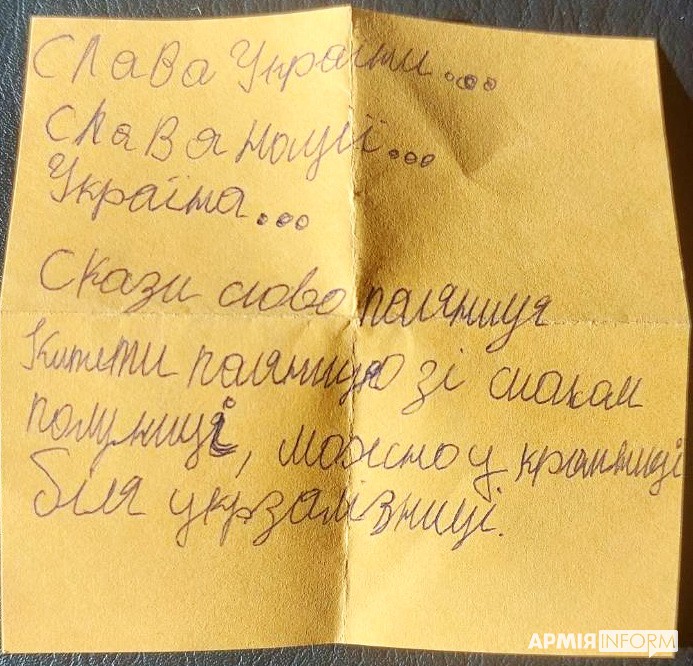 Слава Україні...
Слава нації...
Україна...
Скажи слово паляниця
Купити паляницю зі смаком
полуниці, можно у крамниці
біля укрзалізниці.
АРМІЯINFORM